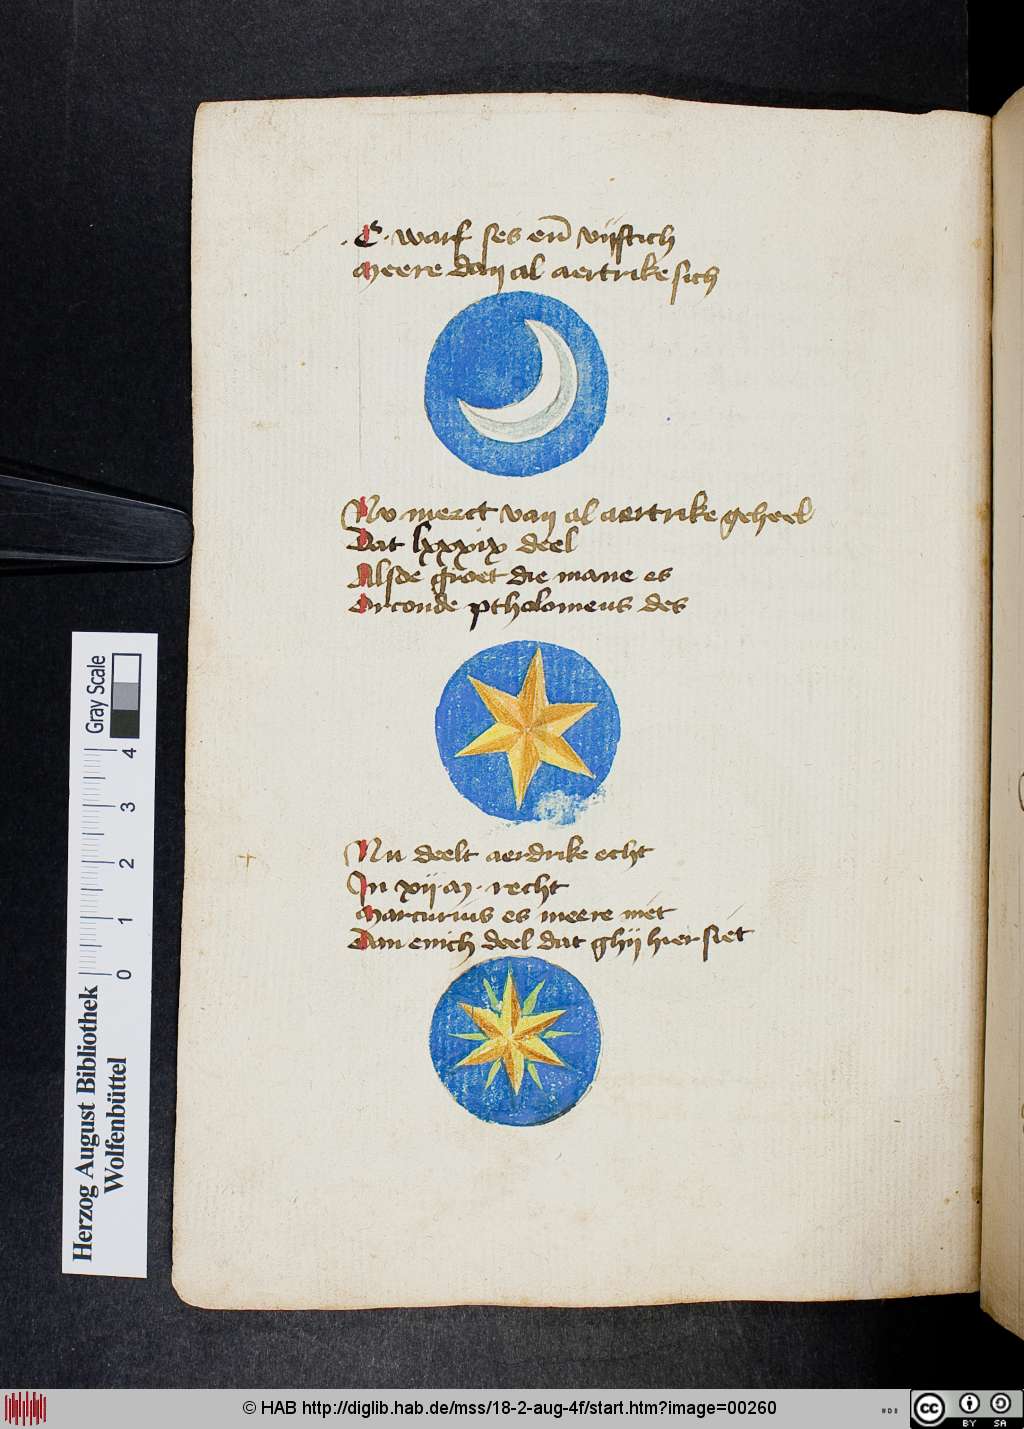 .C. warf ses en̄ vijftich
Meere dan al aertrike sich
Nv merct van al aertrike geheel
Dat lxxxix deel
Alsde groet die mane es
Orconde ptholomeus des
Nu deelt aerdrike echt
In xij. M. recht
Marcurius es meere niet
Dan enich deel dat ghij hier siet
Gray Scale
0 1 2 3 4
Herzog August Bibliothek
Wolfenbüttel
© HAB http://diglib.hab.de/mss/18-2-aug-4f/start.htm?image=00260
cc BY SA